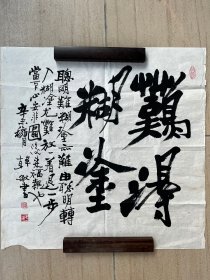 難得
糊塗
聰明難糊塗亦難由聰明轉
入糊塗尤難放一着退一步
當下心安非圖後來福報也